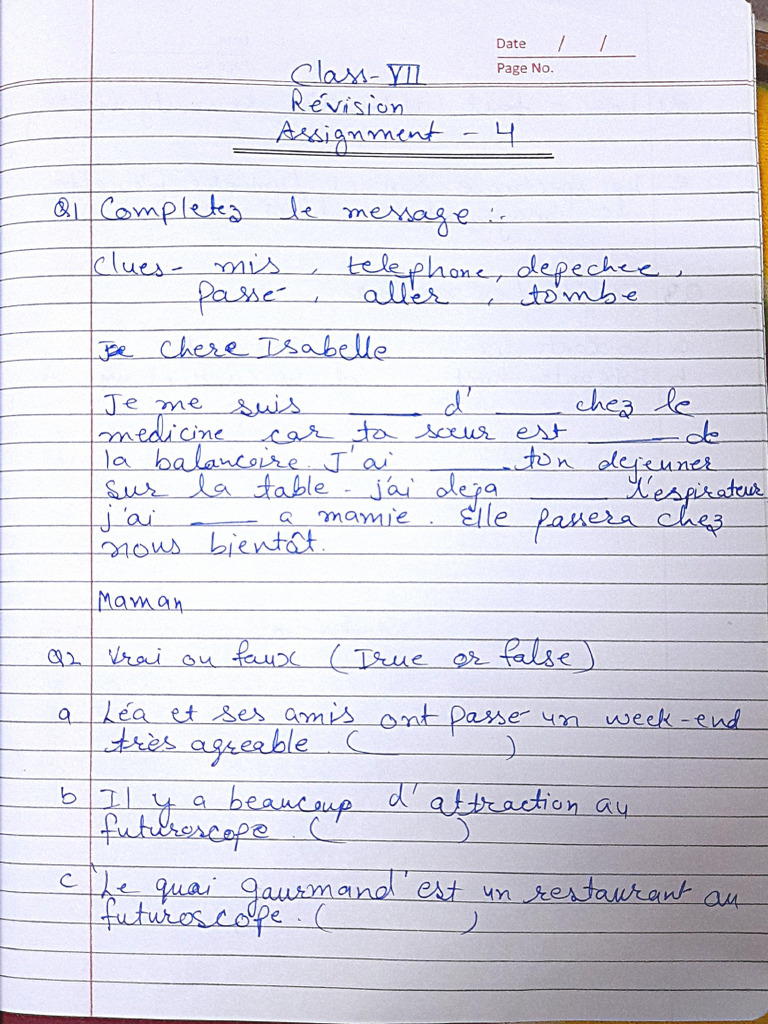 Date / /
Page No.
Class-VII
Révision
Assignment - 4
Q1 Completez le message :-
Clues- mis, telephone, depechee,
passé, aller, tombe
Chere Isabelle
Je me suis ____ d' ____ chez le
medicine car ta sœur est ____ de
la balancoire. J'ai ____ ton dejeuner
sur la table - j'ai deja ____ l'espirateur
j'ai ____ a mamie. Elle passera chez
nous bientôt.
Maman
Q2 Vrai ou faux (True or false)
a Léa et ses amis ont passé un week-end
très agreable. (        )
b Il y a beaucoup d'attraction au
futuroscope. (        )
c 'Le quai gaurmand' est un restaurant au
futuroscope. (        )